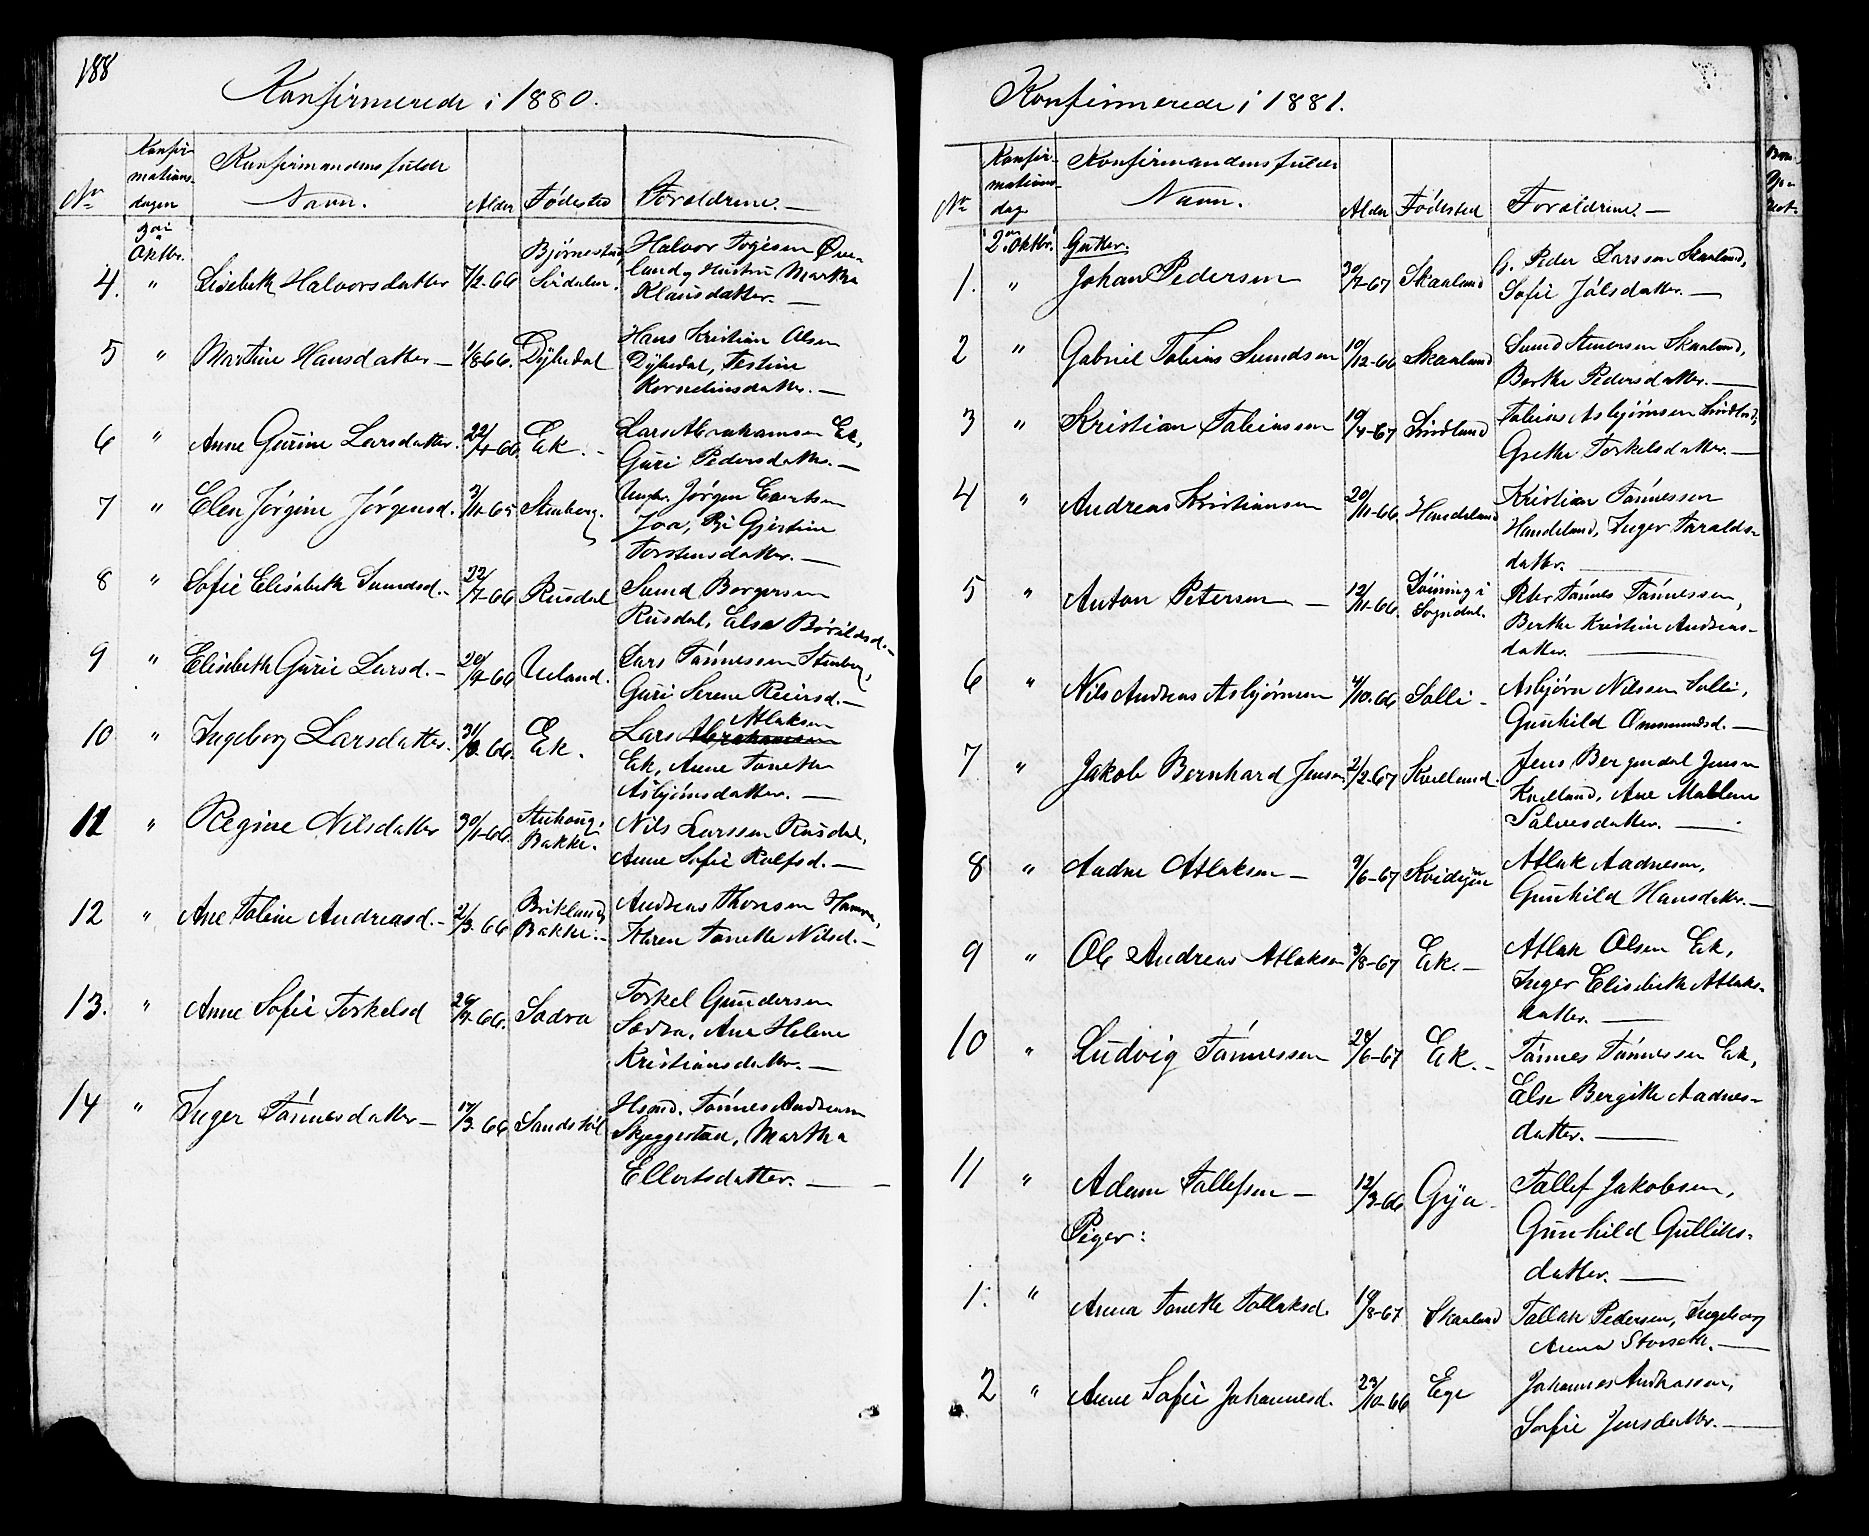 188
Konfirmerede i 1880.
No
Konfir-
mations-
dagen
Konfirmandens fulde
Navn.
Alder
Fødested
Forældrene. —
Oktbr.
4. " Lisebeth Halvorsdatter 7/2-66 Sirdalen.
Halvor
land og Hustru Martha
Klausdatter. —
5 " Martine Hansdatter — 1/8-66. Dÿbedal
Hans Kristian Olsen
Dÿbedal,
Korneliusdatter. —
6 " Anne Gurine Larsdatter. 22/4-66. Ek. —
Lars Abrahamsen Ek,
Guri Pedersdatter. —
7 " Elen Jørgine Jørgensd. 3/11-65 Stenberg.
Ungkr. Jørgen
Gjertine
Torstensdatter. —
8 " Sofie Elisabeth Sumdsd. — 22/7-66 Rusdal
Sumd Borgersen
Rusdal, Elsa
9 " Elisebeth Gurie Larsd. — 20/9-66 Ueland.
Lars Tønnessen Stenberg,
Guri Serene Reiersd. —
10 " Ingeborg Larsdatter. Ek.
Atlaksen
Lars Abrahamsen
Ek, Anne Tonette
Asbjørnsdatter. —
11 " Regine Nilsdatter 30/1-66.
Bakke.
Nils Larssen Rusdal,
Anne Sofie Rolfsd. —
12 " Ane Taline Andreasd. — 2/3-66 Brikland,
Bakke. —
Andreas Thorsen
Karen Tonette Nilsd. —
13. " Anne Sofie Torkelsd Sadra
Torkel Gundersen
Sadra, Ane Helene
Kristiansdatter. —
14 " Inger Tønnesdatter — 17/3-66
Hsmd. Tønnes Andreasen
Skjeggestad, Martha
Ellertsdatter. — —
Konfirmerede i 1881.
No
Konfir-
mations-
dag
Konfirmandens fulde
Navn.
Alder
Fødested
Forældrene. —
2den Oktbr. Gutter.
1. " Johan Pedersen 30/7-67 Skaaland
G. Peder Larssen Skaaland,
Sofie Jölsdatter. —
2 " Gabriel Tobias Sumdsen 10/12-66 Skaaland
Sumd Skaaland,
Berthe Pedersdatter. —
3 " Kristian Tobiassen 19/4-67 Lindland
Tobias Asbjørnsen Lindland,
Grethe Torkelsdatter. —
4 " Andreas Kristiansen 20/11-66. Handeland
Kristian Tønnessen
Handeland, Inger Taralds-
datter. —
5 " Anton Petersen — 12/11-66. Löining i
Sogndal.
Peter Tønnes Tønnessen,
Berthe Kristine Andreas-
datter. —
6 " Nils Andreas Asbjørnsen 4/10-66 Solli —
Asbjørn Nilssen Solli,
Gunhild Ommundsd. —
7 " Jakob Bernhard Jensen 2/2-67 Kvelland.
Jens Bergendal Jensen
Kvelland, Ane Malene
Salvesdatter. —
8 " Aadne Atlaksen — 9/6-67
Atlak Aadnesen,
Gunhild Hansdatter. —
9 " Ole Andreas Atlaksen 3/8-67 Ek. —
Atlak Olsen Ek,
Inger Elisebeth Atlaks-
datter. —
10 " Ludvig Tønnessen 24/6-67 Ek. —
Tønnes Tønnessen Ek,
Else Bergitte Aadnes-
datter. —
11 " Adam Tallefsen — 12/3-66 Gÿa —
Tallef Jakobsen,
Gunhild Gulliks-
datter. —
Piger:
1. " Anna Tonette Tallaksd. 19/8-67 Skaaland
Tallak Pedersen, Ingeborg
Anna —
2 " Anne Sofie Johannesd. 23/10-66 Ege
Johannes Andreassen,
Sofie Jensdatter. —